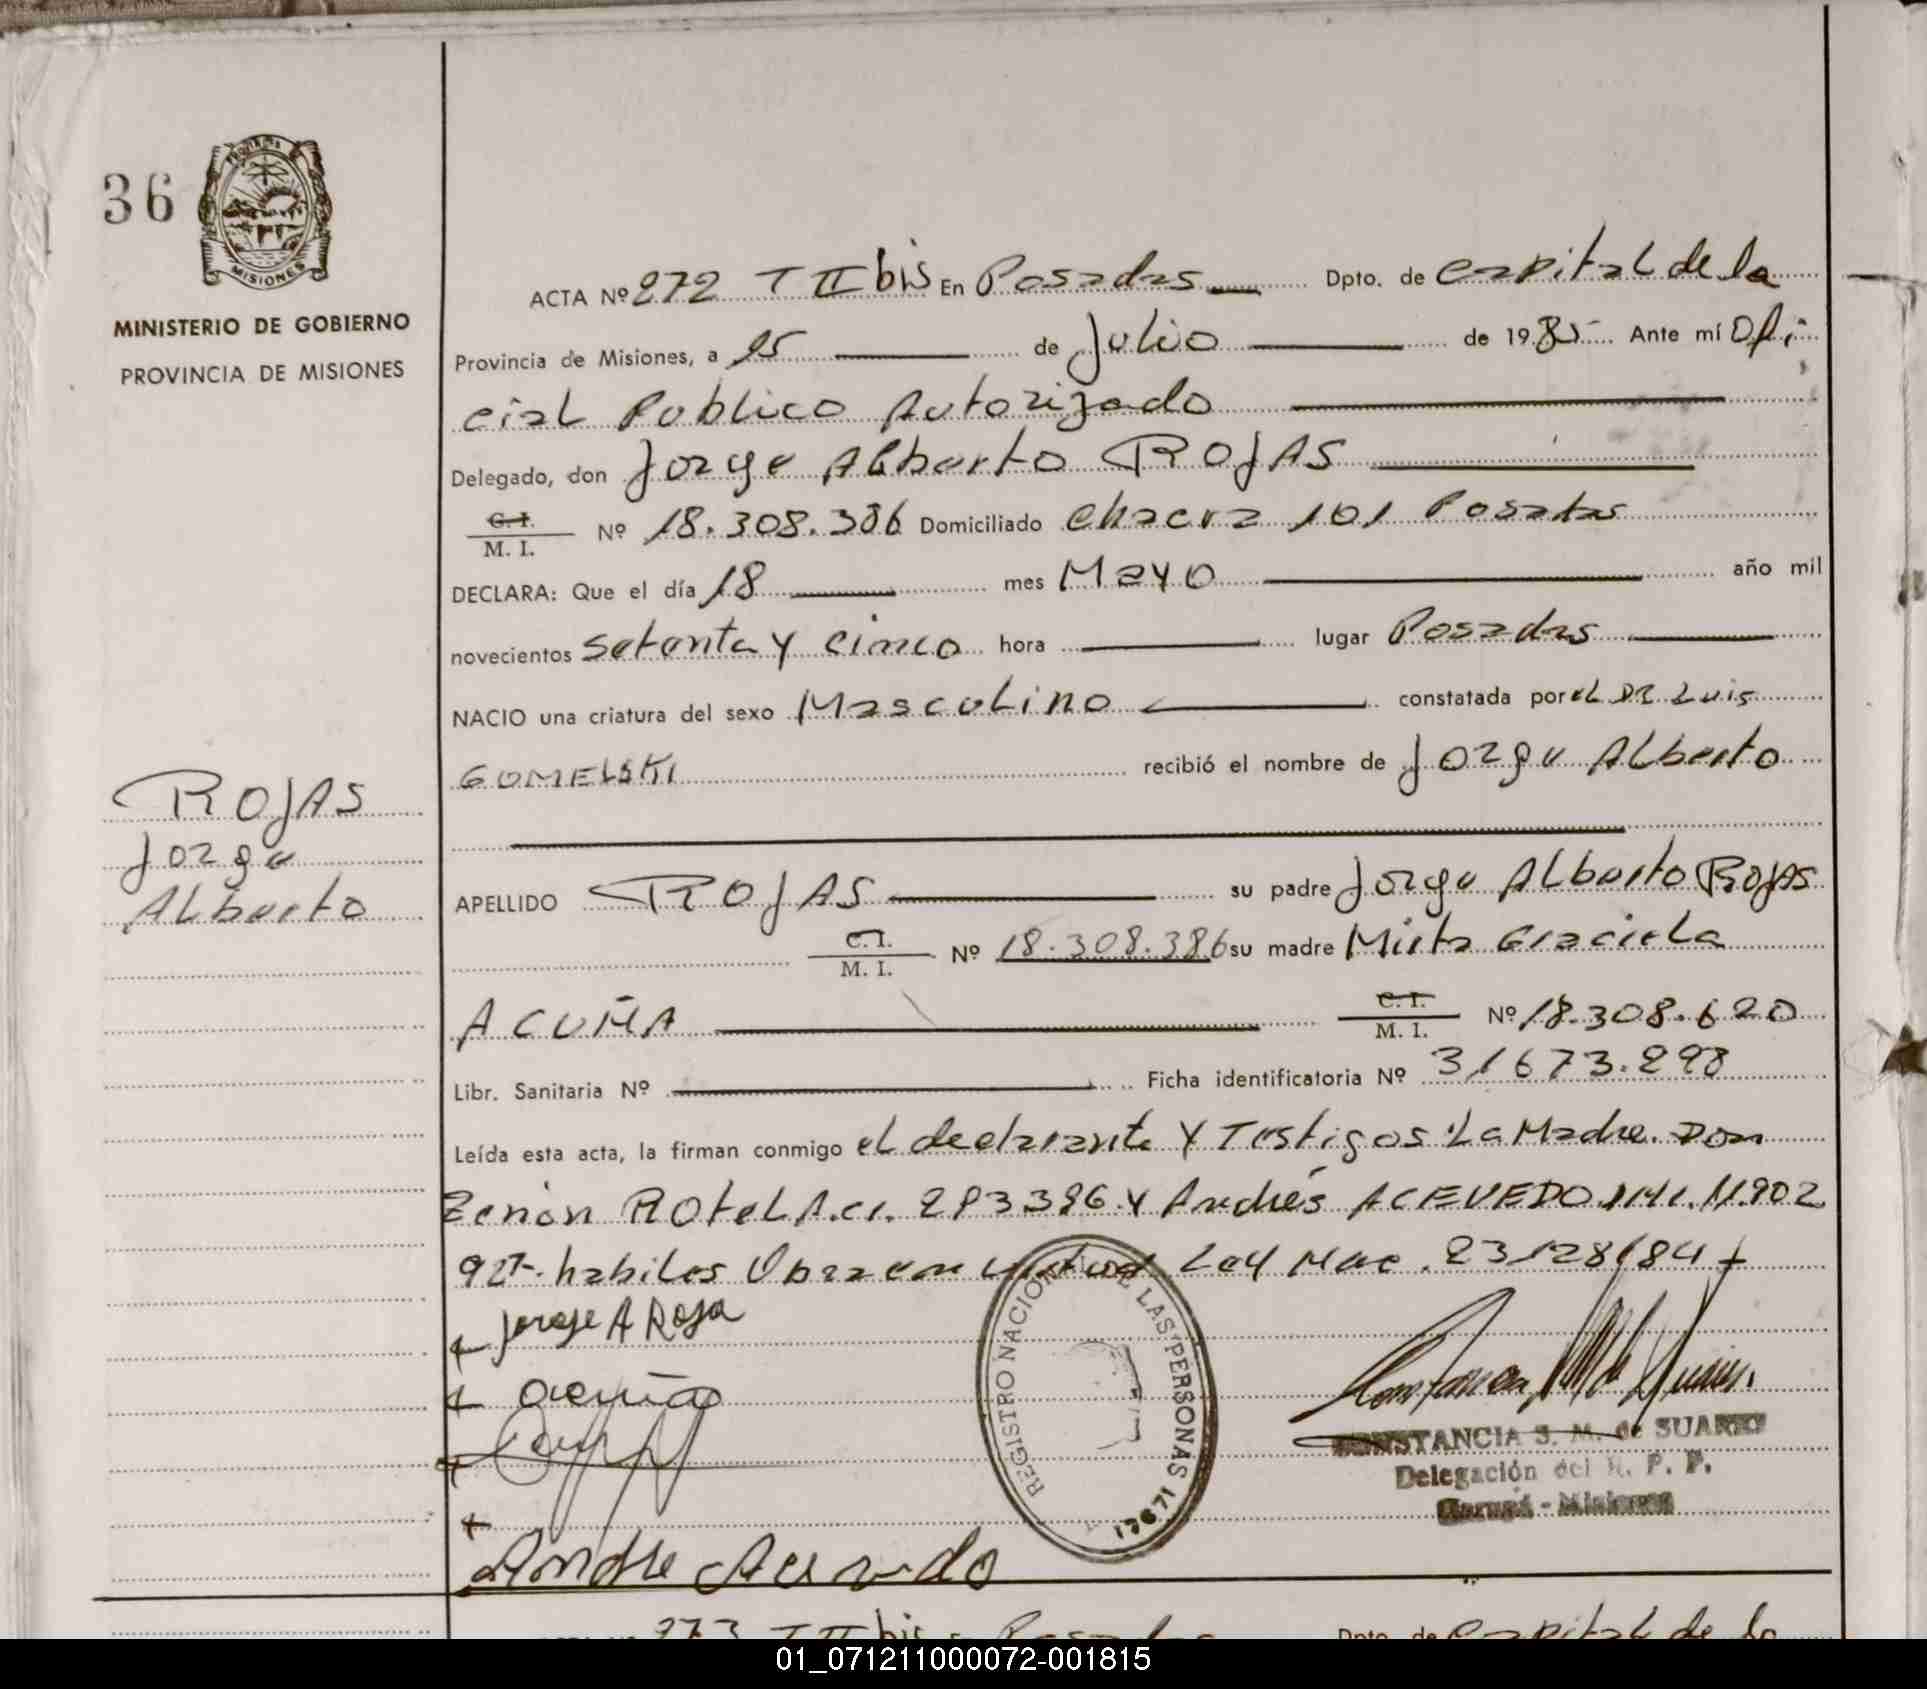 36
PROVINCIA
MISIONES
MINISTERIO DE GOBIERNO
PROVINCIA DE MISIONES
ACTA Nº 272 T II bis En Posadas Dpto. de Capital de la
Provincia de Misiones, a 25 de Julio de 1985 Ante mí Ofi
cial Publico Autorizado
Delegado, don Jorge Alberto ROJAS
C.I.
M. I. Nº 18.308.386 Domiciliado Chacra 101 Posadas
DECLARA: Que el día 18 mes Mayo año mil
novecientos setenta y cinco hora lugar Posadas
NACIO una criatura del sexo Masculino constatada por el DR Luis
GOMELSKI recibió el nombre de Jorge Alberto
ROJAS
Jorge
Alberto
APELLIDO ROJAS su padre Jorge Alberto ROJAS
C.I.
M. I. Nº 18.308.386 su madre Mirta Graciela
ACUÑA C.I.
M. I. Nº 18.308.620
Libr. Sanitaria Nº Ficha identificatoria Nº 31673.298
Leída esta acta, la firman conmigo el declarante y Testigos La Madre. Don
Zenón ROtELA.C.I. 283396 y Andrés ACEVEDO M.I. 11.902
927. habiles Obra en virtud Ley Nac. 23128/84
Jorge A Roja
Acuña
REGISTRO NACIONAL DE LAS PERSONAS
17671
CONSTANCIA S. M. de SUAREZ
Delegación del R. P. P.
Garupá - Misiones
Andre Acevedo
273 T II bis En Posadas Dpto. de Capital de la
01_071211000072-001815